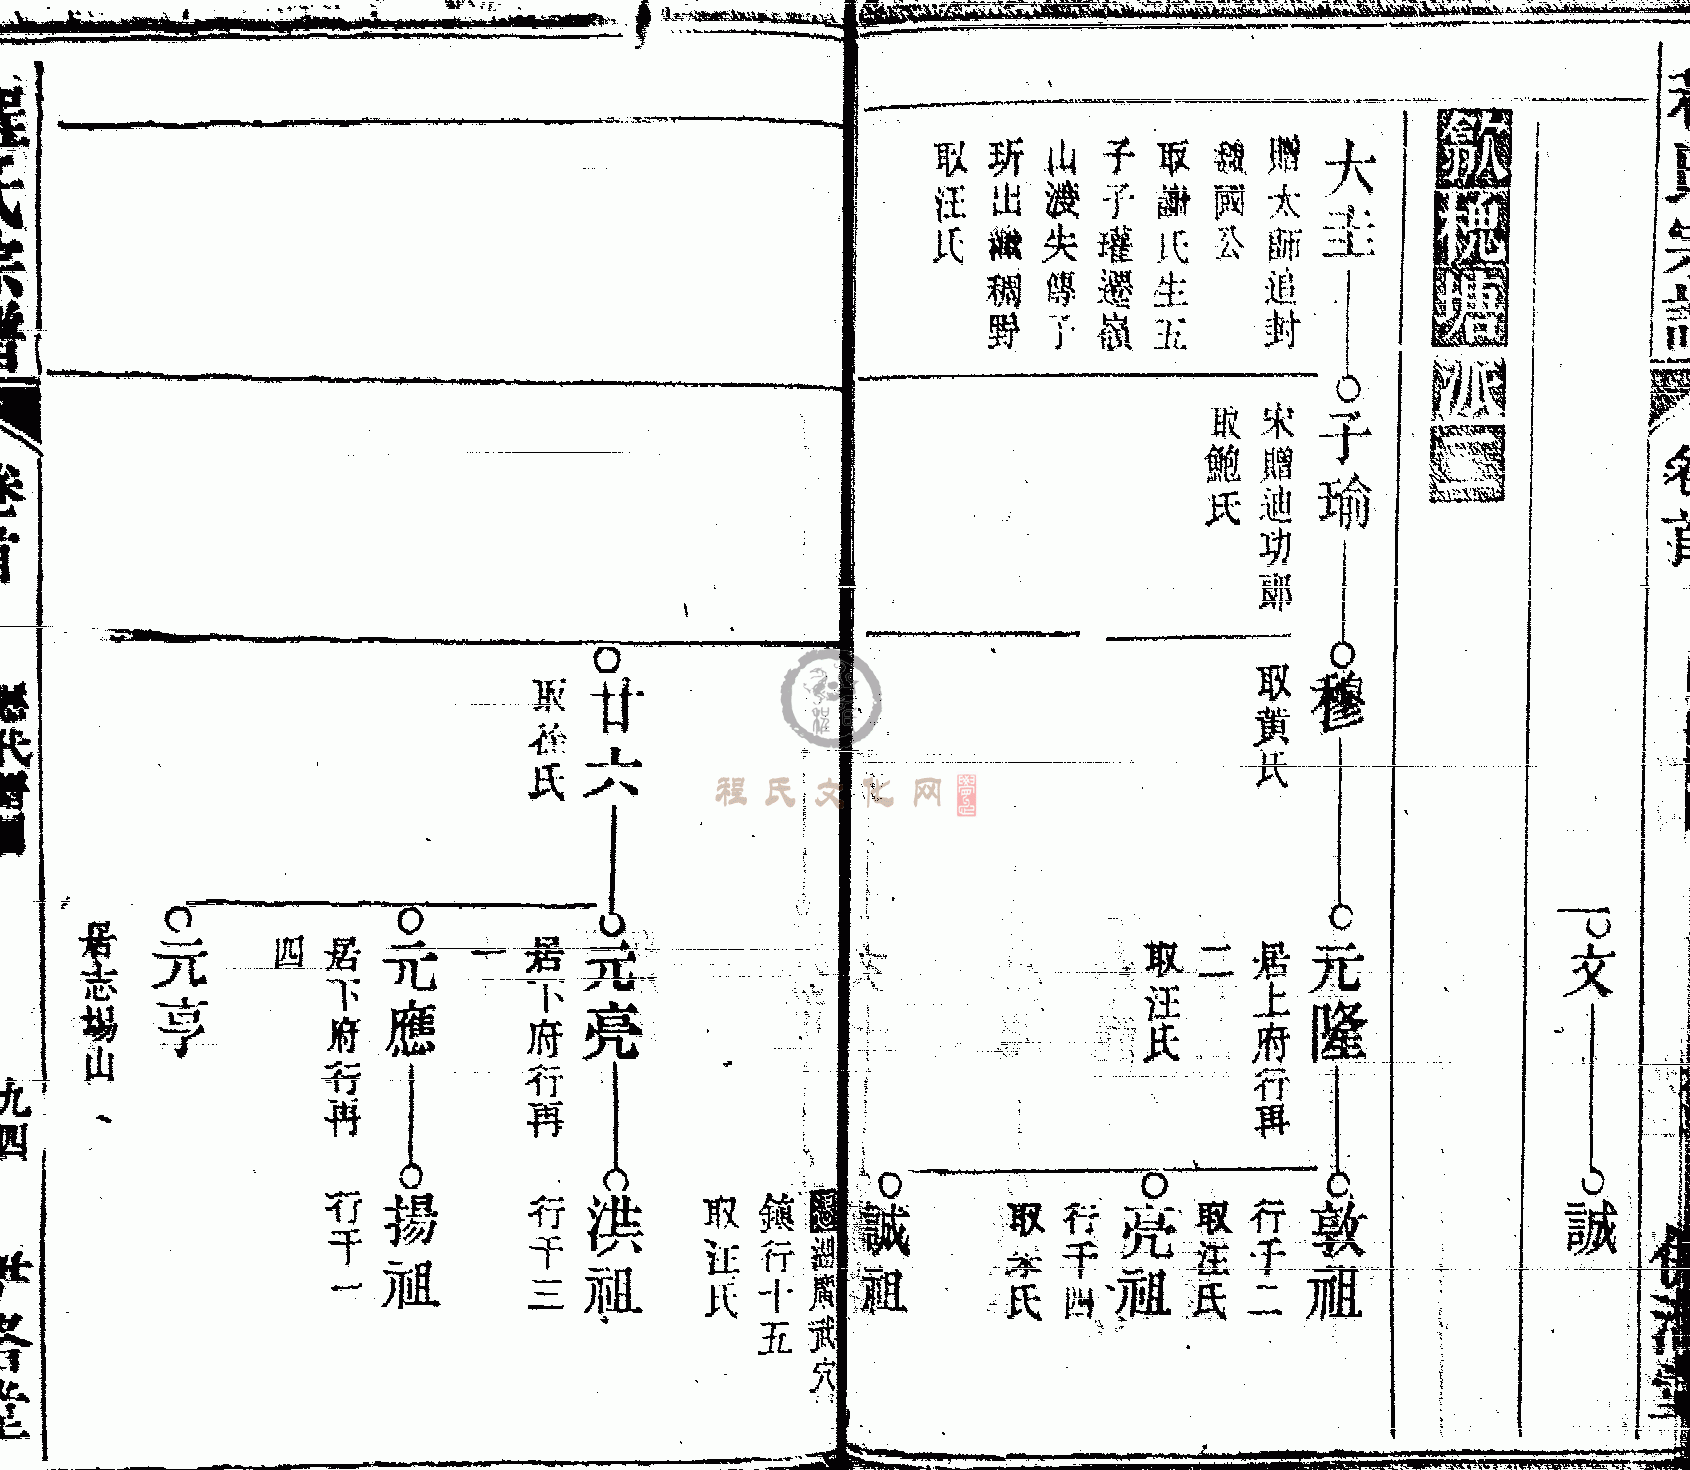 文
誠
歙槐塘派二
大圭
贈太師追封
魏國公
取謝氏生五
子子瓘遷嶺
山後失傳子
玡出繼稠野
取汪氏
子瑜
宋贈迪功郎
取鮑氏
穆
取黃氏
元隆
居上府行再
二
取汪氏
敦祖
行千二
取汪氏
亮祖
行千四
取李氏
誠祖
遷湖廣武穴
鎮行十五
取汪氏
廿六
取徐氏
元亮
居下府行再
一
洪祖
行千三
元應
居下府行再
四
揚祖
行千一
元亨
居志場山
程氏宗譜
卷首
歷代圖
九四
程氏文化网